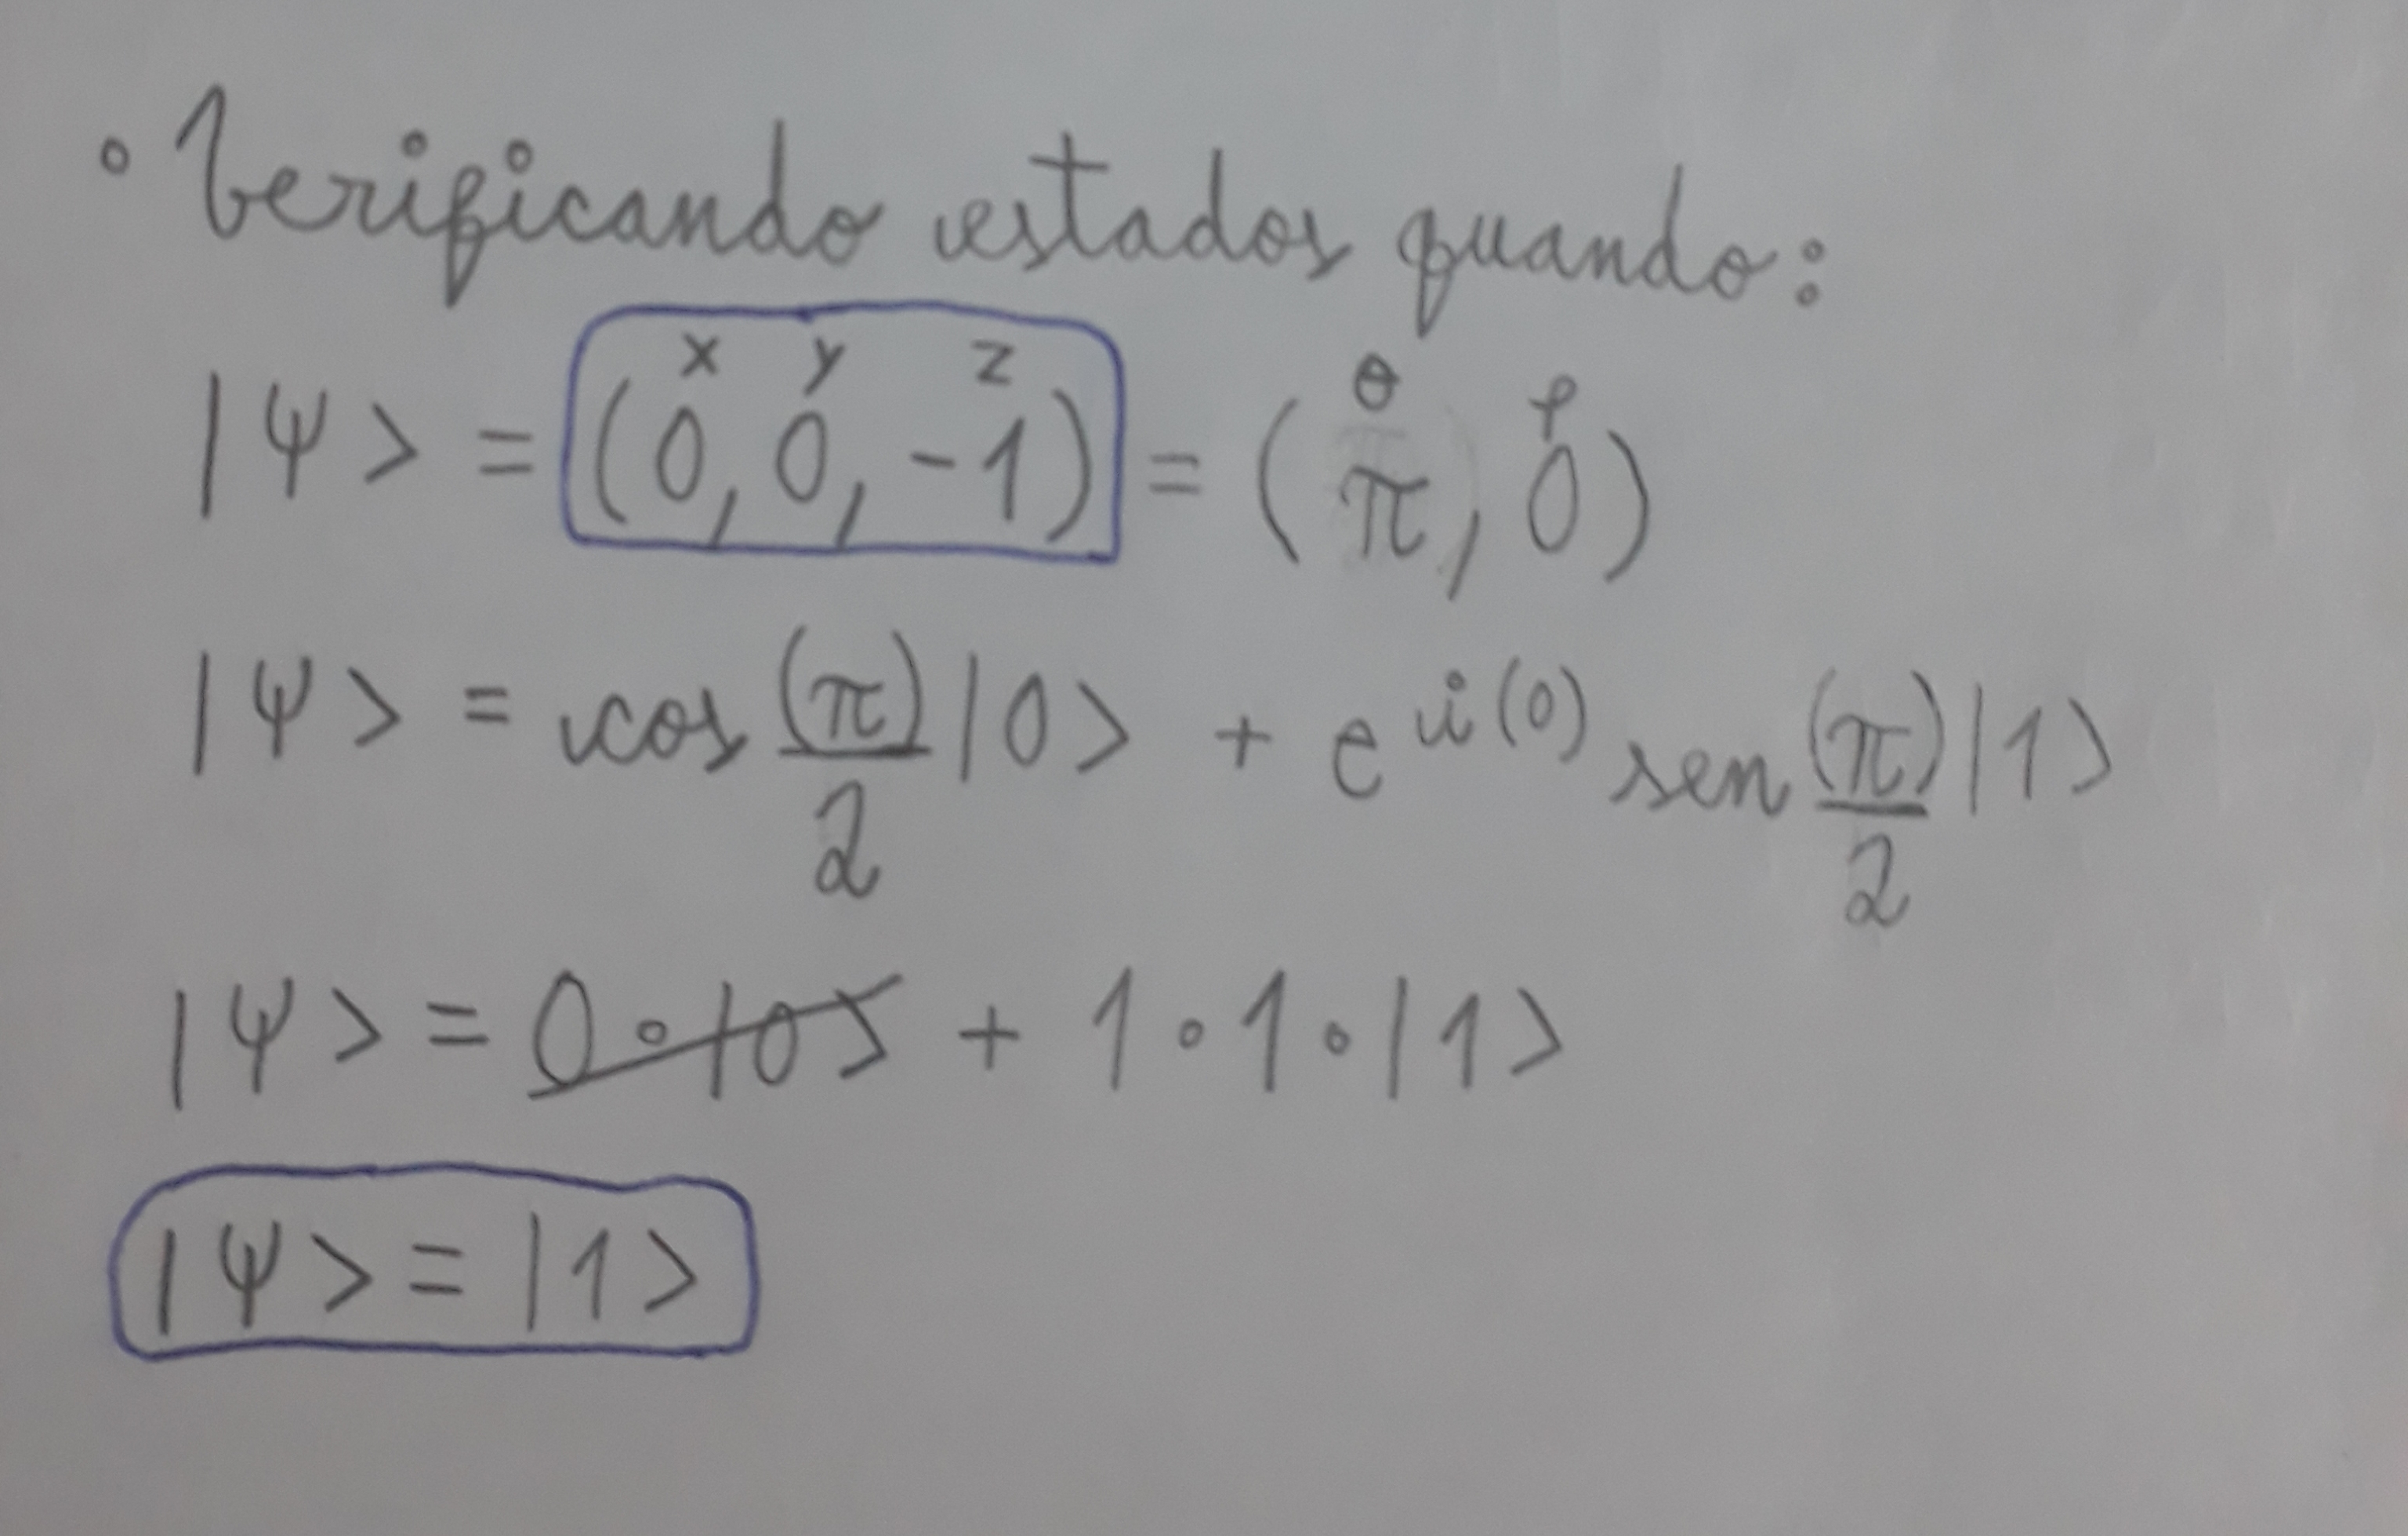 • Verificando estados quando:
x y z θ φ
|ψ> = (0, 0, -1) = (π, 0)
|ψ> = cos (π)/2 |0> + e^i(0) sen (π)/2 |1>
|ψ> = 0 • |0> + 1 • 1 • |1>
|ψ> = |1>